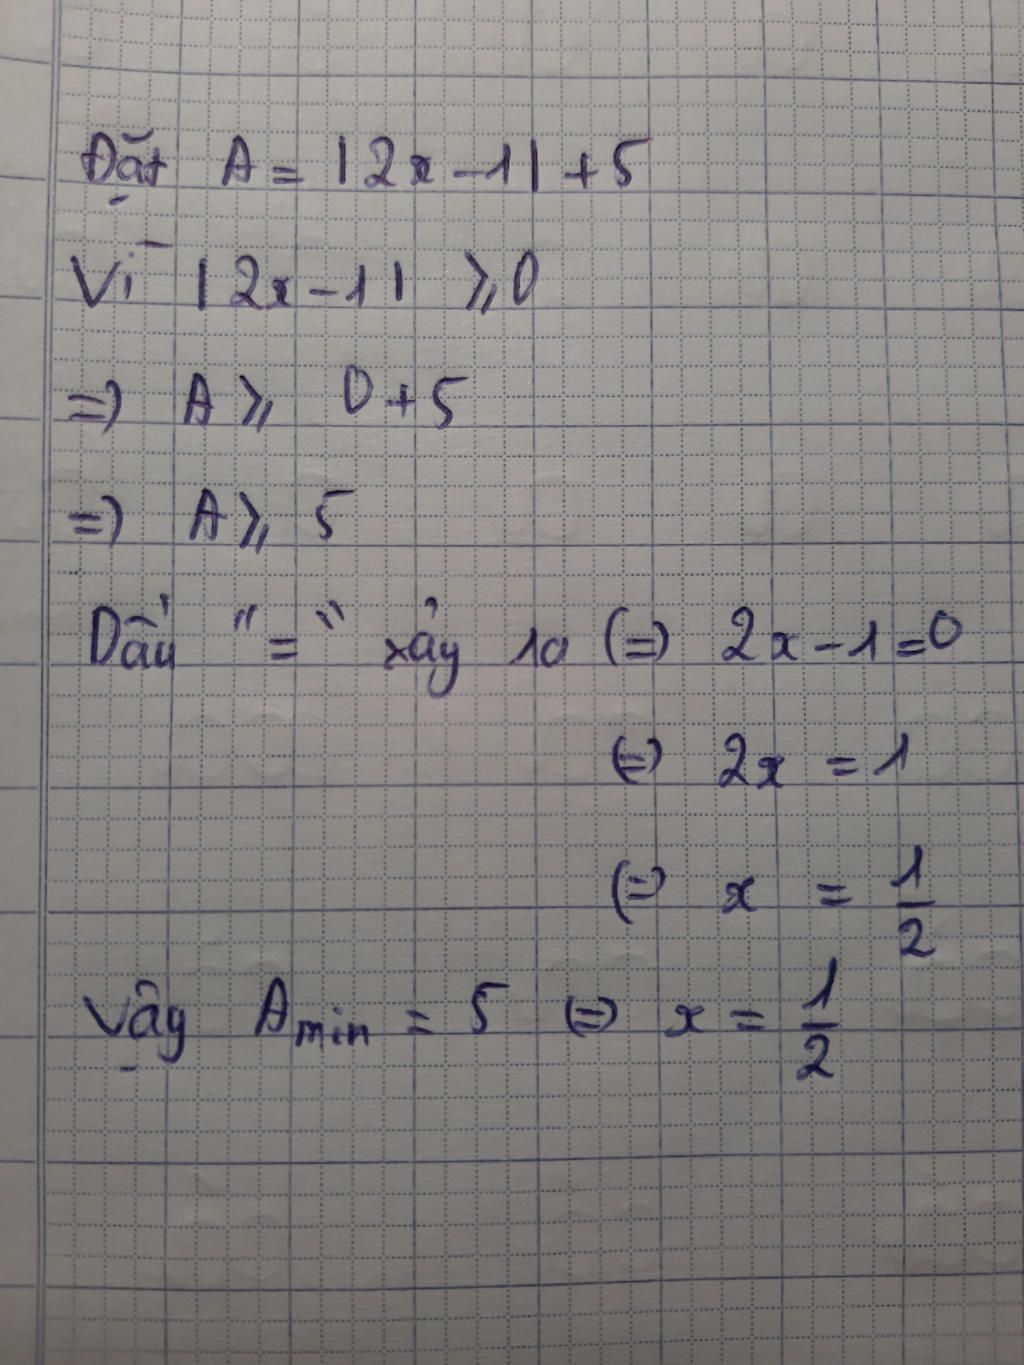 Đặt A = |2x-1|+5
Vì |2x-1| ⩾0
=) A⩾ 0+5
=) A⩾ 5
Dấu "=" xảy ra (=) 2x-1=0
(=) 2x = 1
(=) x = 1/2
Vậy Amin = 5 (=) x = 1/2